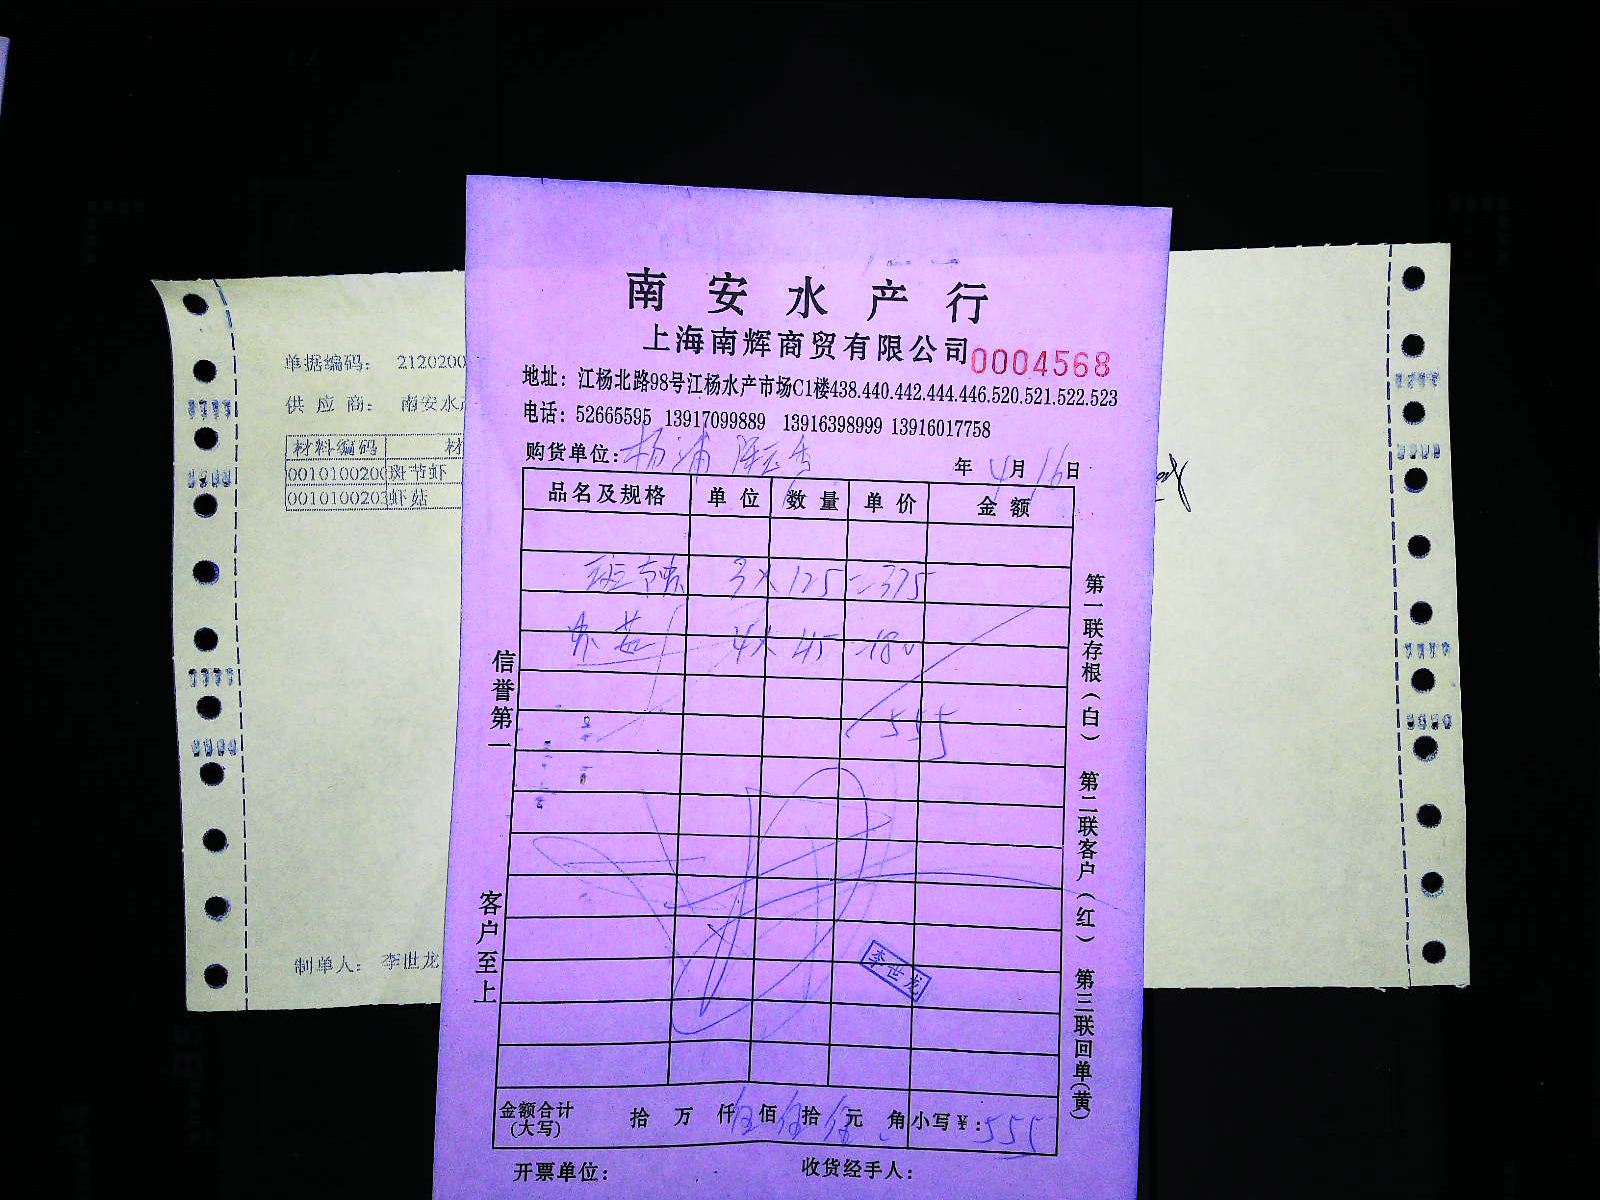 南安水产行
上海南辉商贸有限公司 0004568
地址：江杨北路98号江杨水产市场C1楼438.440.442.444.446.520.521.522.523
电话：52665595 13917099889 13916398999 13916017758
购货单位：杨浦 年 4月16日
品名及规格 单位 数量 单价 金额
斑节虾 3×125=375
虾菇 4×45=180
555
李世龙
金额合计(大写) 拾 万 仟伍佰伍拾伍元 角 小写￥：555
开票单位： 收货经手人：
信誉第一 客户至上
第一联存根（白） 第二联客户（红） 第三联回单(黄)
单据编码： 2120200
供应商： 南安水
材料编码 材
0010100200 斑节虾
0010100203 虾菇
制单人： 李世龙